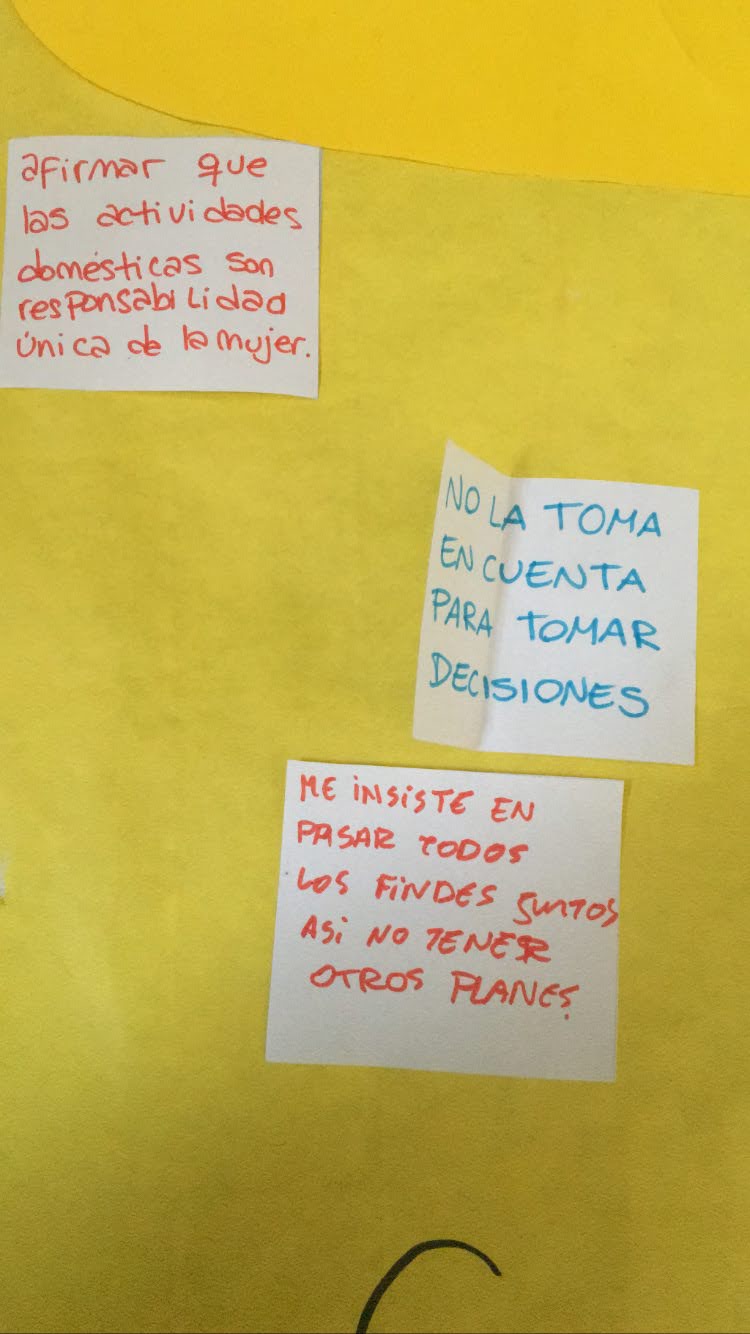 afirmar que
las actividades
domésticas son
responsabilidad
única de la mujer.
NO LA TOMA
EN CUENTA
PARA TOMAR
DECISIONES
ME INSISTE EN
PASAR TODOS
LOS FINDES JUNTOS
ASI NO TENER
OTROS PLANES